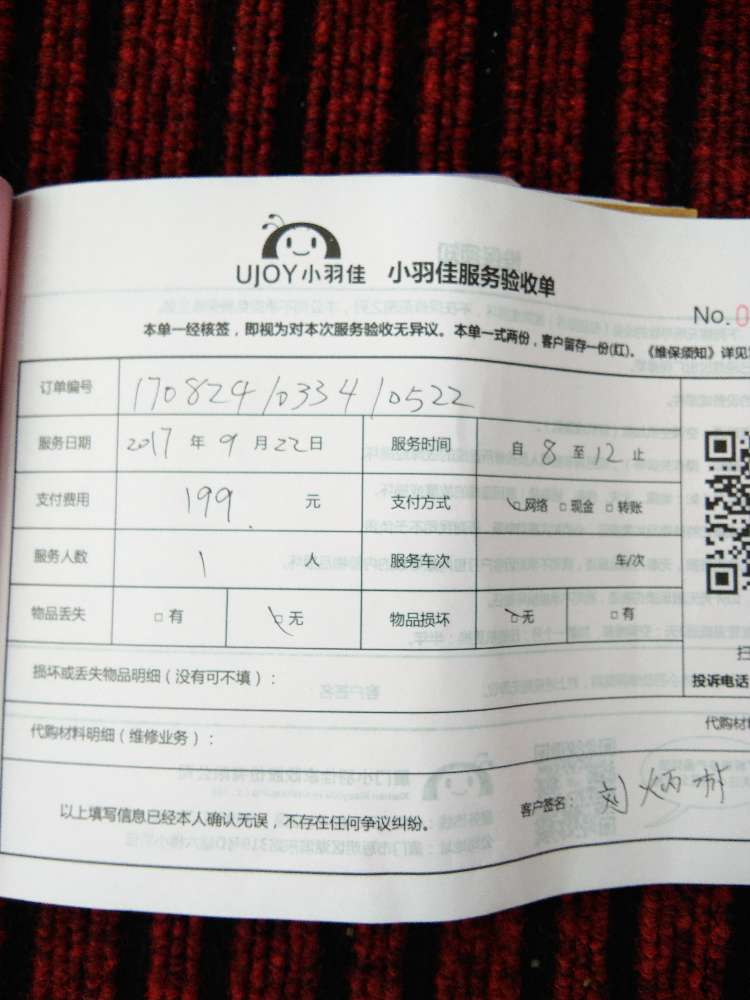 UJOY小羽佳 小羽佳服务验收单
No. 0
本单一经核签，即视为对本次服务验收无异议。本单一式两份，客户留存一份(红)。《维保须知》详见
订单编号 1708241033410522
服务日期 2017 年 9 月 22 日 服务时间 自 8 至 12 止
支付费用 199. 元 支付方式 □网络 □现金 □转账
服务人数 1 人 服务车次 车/次
物品丢失 □有 □无 物品损坏 □无 □有
损坏或丢失物品明细（没有可不填）：
扫
投诉电话
代购材料明细（维修业务）：
代购材
以上填写信息已经本人确认无误，不存在任何争议纠纷。
客户签名： 刘炳